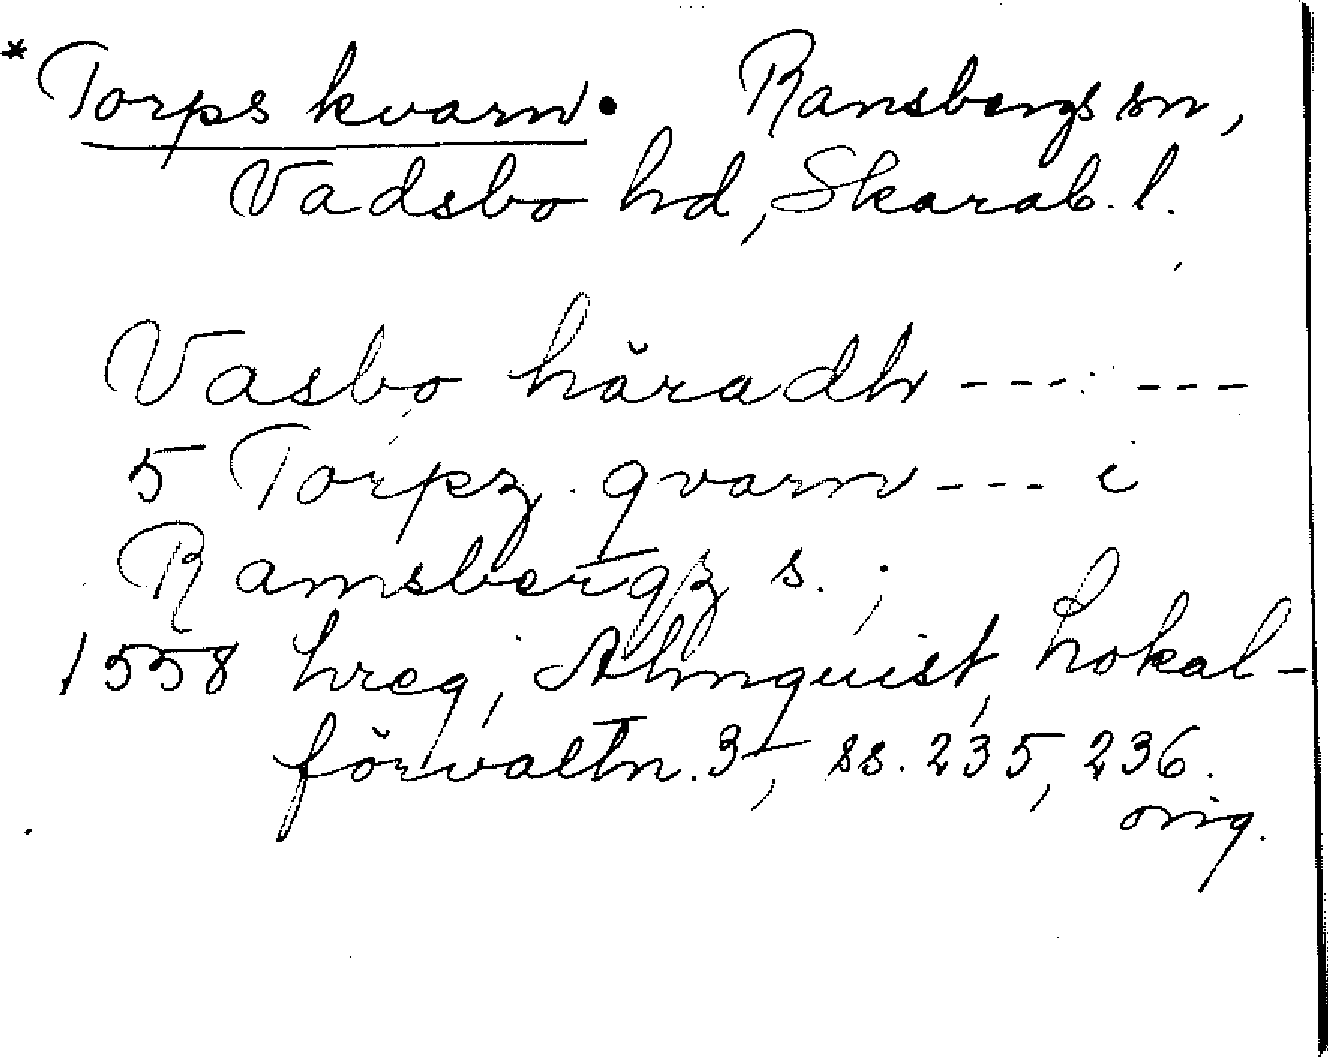 *Torps kvarn. Ransbergs sn,
Vadsbo hd, Skarab. l.
Vasbo häradh --- ---
5 Torpz qvarn --- i
Ramsbergz s. ;
1558 hreg, Almquist, Lokal-
förvaltn. 3, ss. 235, 236.
orig.